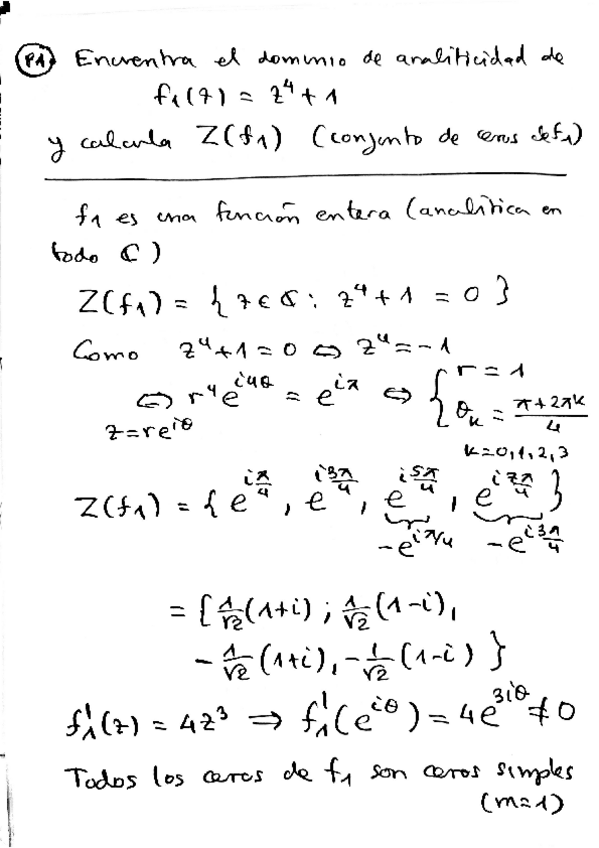 P1 Encuentra el dominio de analiticidad de
f₁(z) = z⁴ + 1
y calcula Z(f₁) (conjunto de ceros de f₁)
f₁ es una función entera (analítica en
todo ℂ)
Z(f₁) = { z ∈ ℂ : z⁴ + 1 = 0 }
Como z⁴ + 1 = 0 ⇔ z⁴ = -1
⇔ r⁴ e^{i4θ} = e^{iπ} ⇔ { r = 1
z = re^{iθ} θₖ = (π + 2πk)/4
k = 0, 1, 2, 3
Z(f₁) = { e^{iπ/4}, e^{i3π/4}, e^{i5π/4}, e^{i7π/4} }
-e^{iπ/4} -e^{i3π/4}
= { 1/√2 (1+i) ; 1/√2 (1-i),
- 1/√2 (1+i), - 1/√2 (1-i) }
f₁'(z) = 4z³ ⇒ f₁'(e^{iθ}) = 4e^{3iθ} ≠ 0
Todos los ceros de f₁ son ceros simples
(m=1)